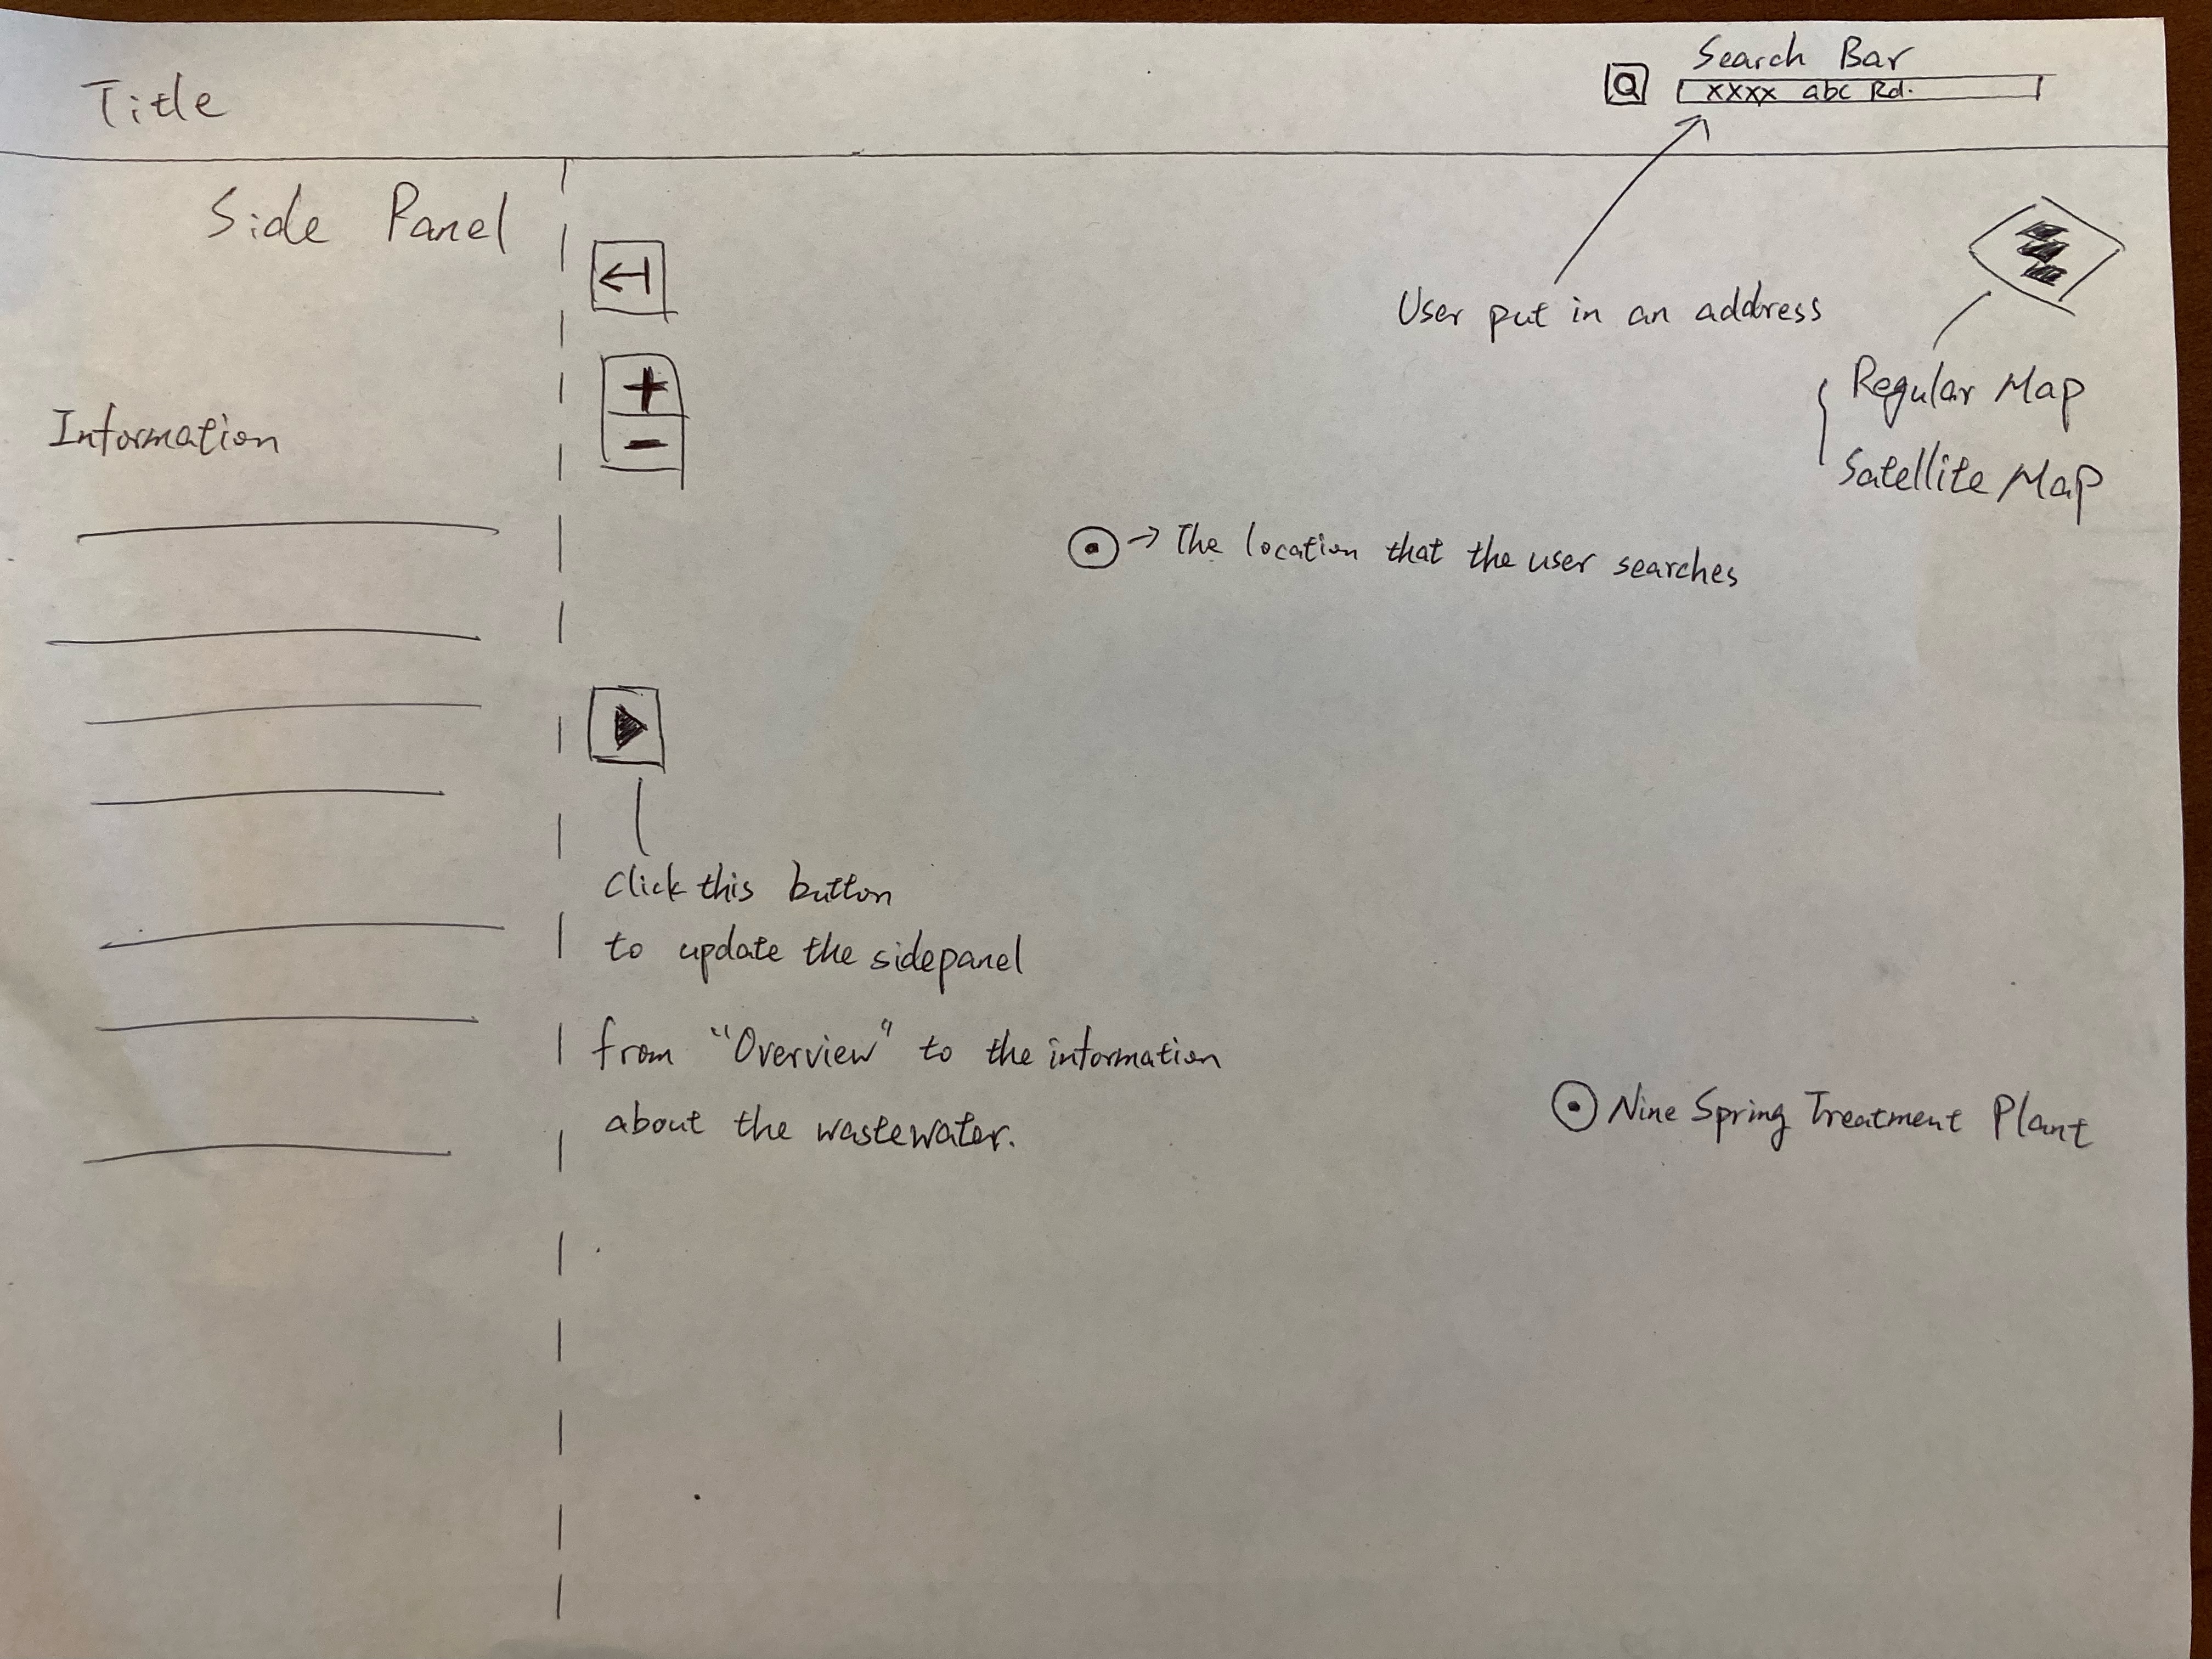 Title
Search Bar
Q
xxxx abc Rd.
Side Panel
User put in an address
+
-
Regular Map
Satellite Map
Information
The location that the user searches
Click this button
to update the sidepanel
from "Overview" to the information
about the wastewater.
Nine Spring Treatment Plant